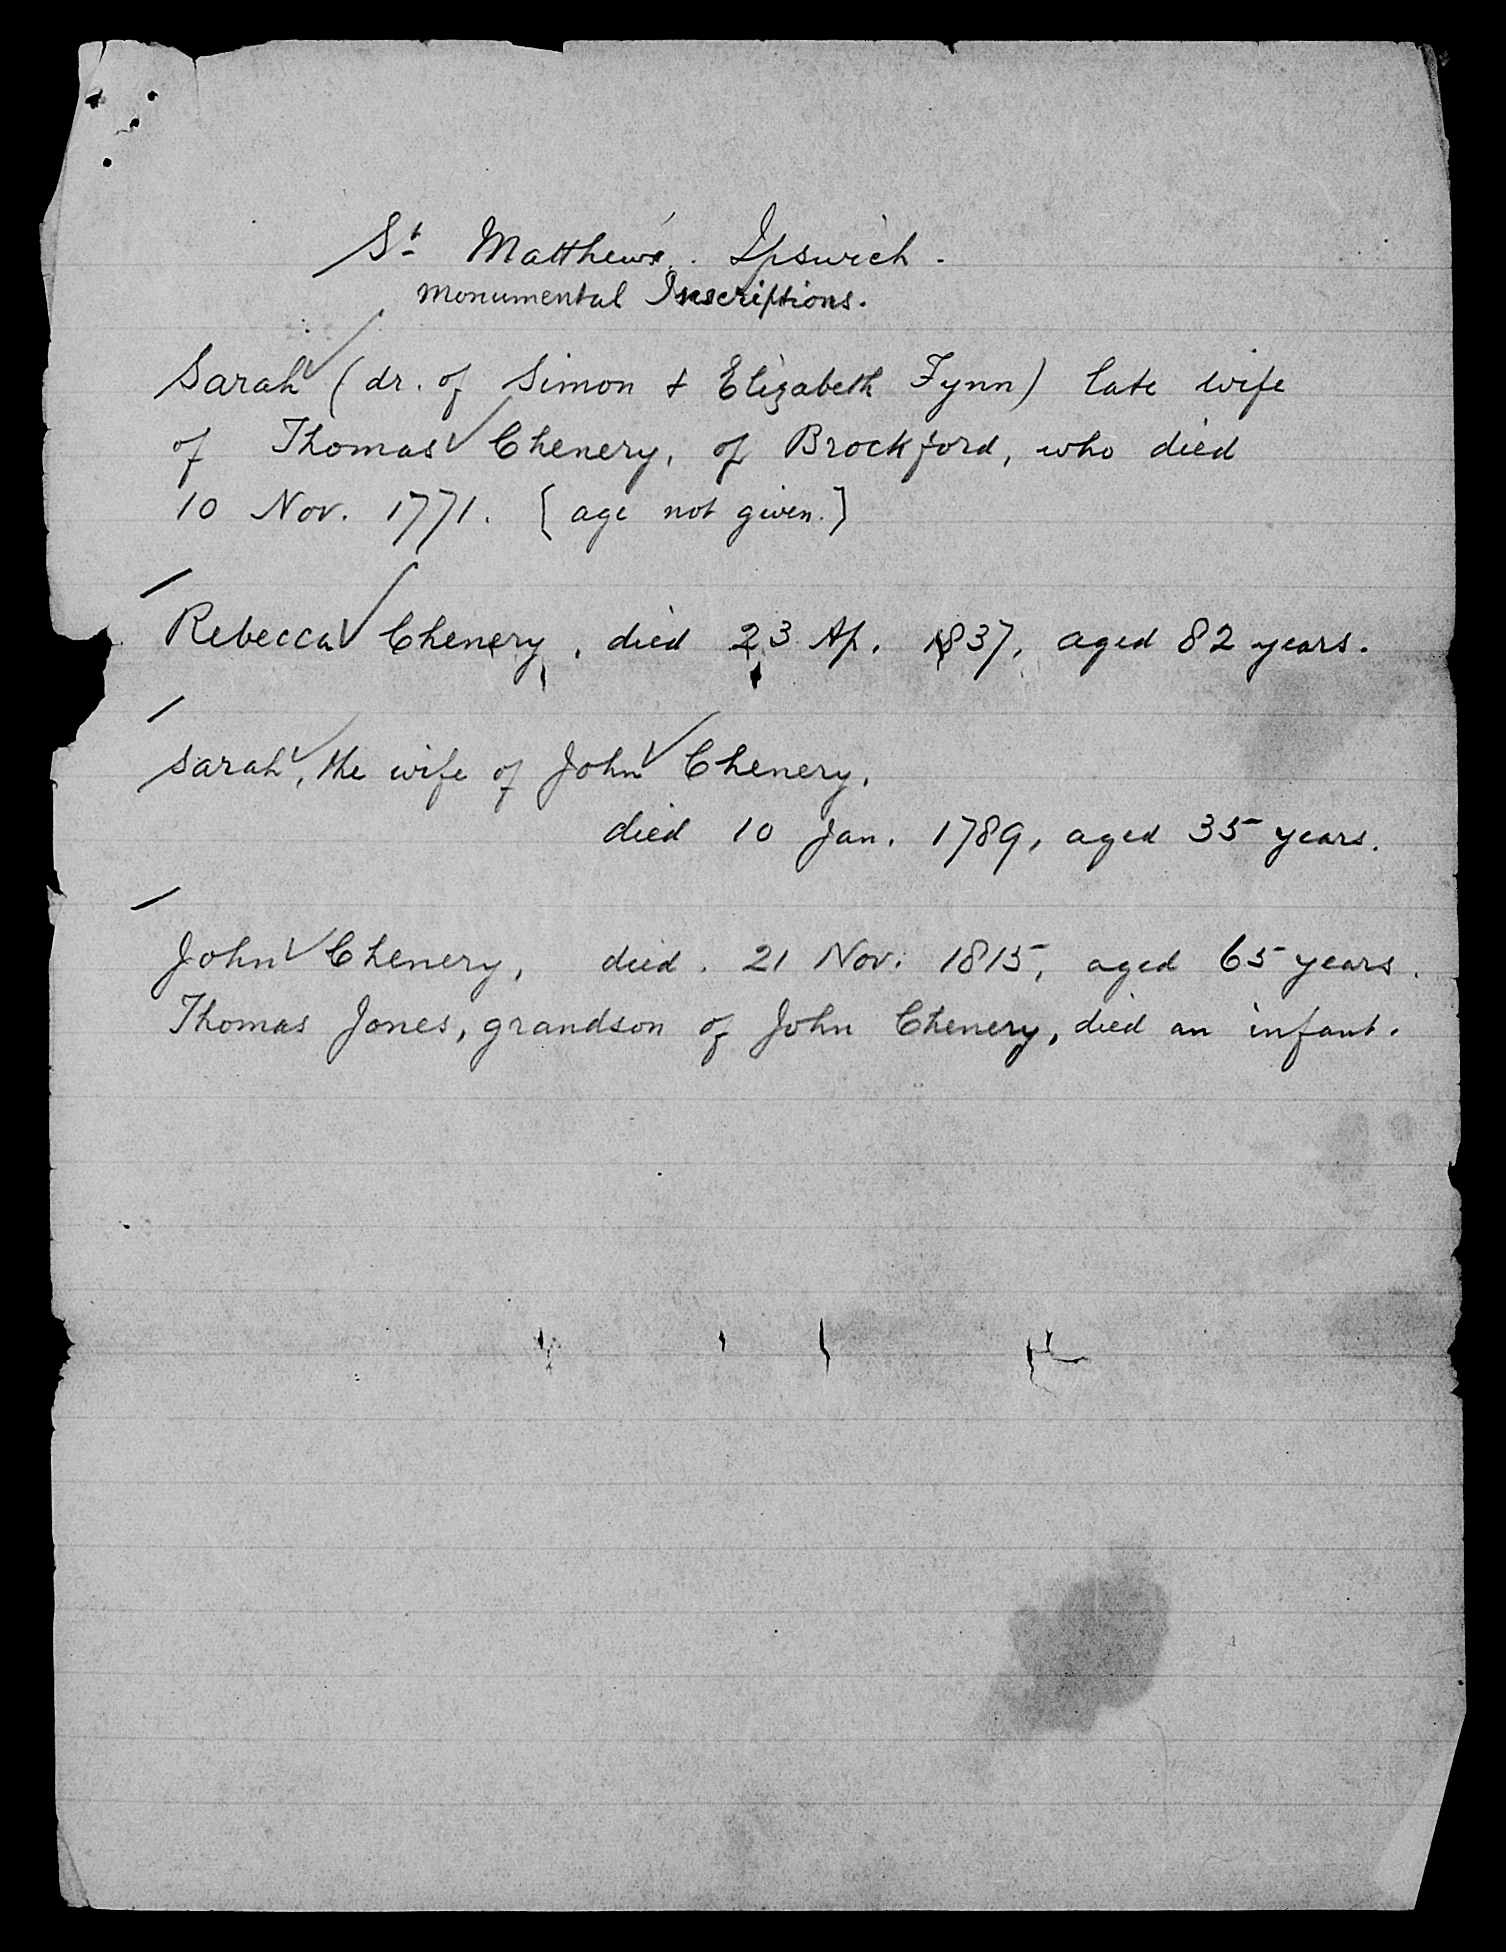 St Matthew's. Ipswich.
Monumental Inscriptions.
Sarah (dr. of Simon & Elizabeth Fynn) late wife
of Thomas Chenery, of Brockford, who died
10 Nov. 1771. [age not given.]
Rebecca Chenery, died 23 Ap. 1837, aged 82 years.
Sarah, the wife of John Chenery,
died 10 Jan. 1789, aged 35 years.
John Chenery, died. 21 Nov. 1815, aged 65 years.
Thomas Jones, grandson of John Chenery, died an infant.